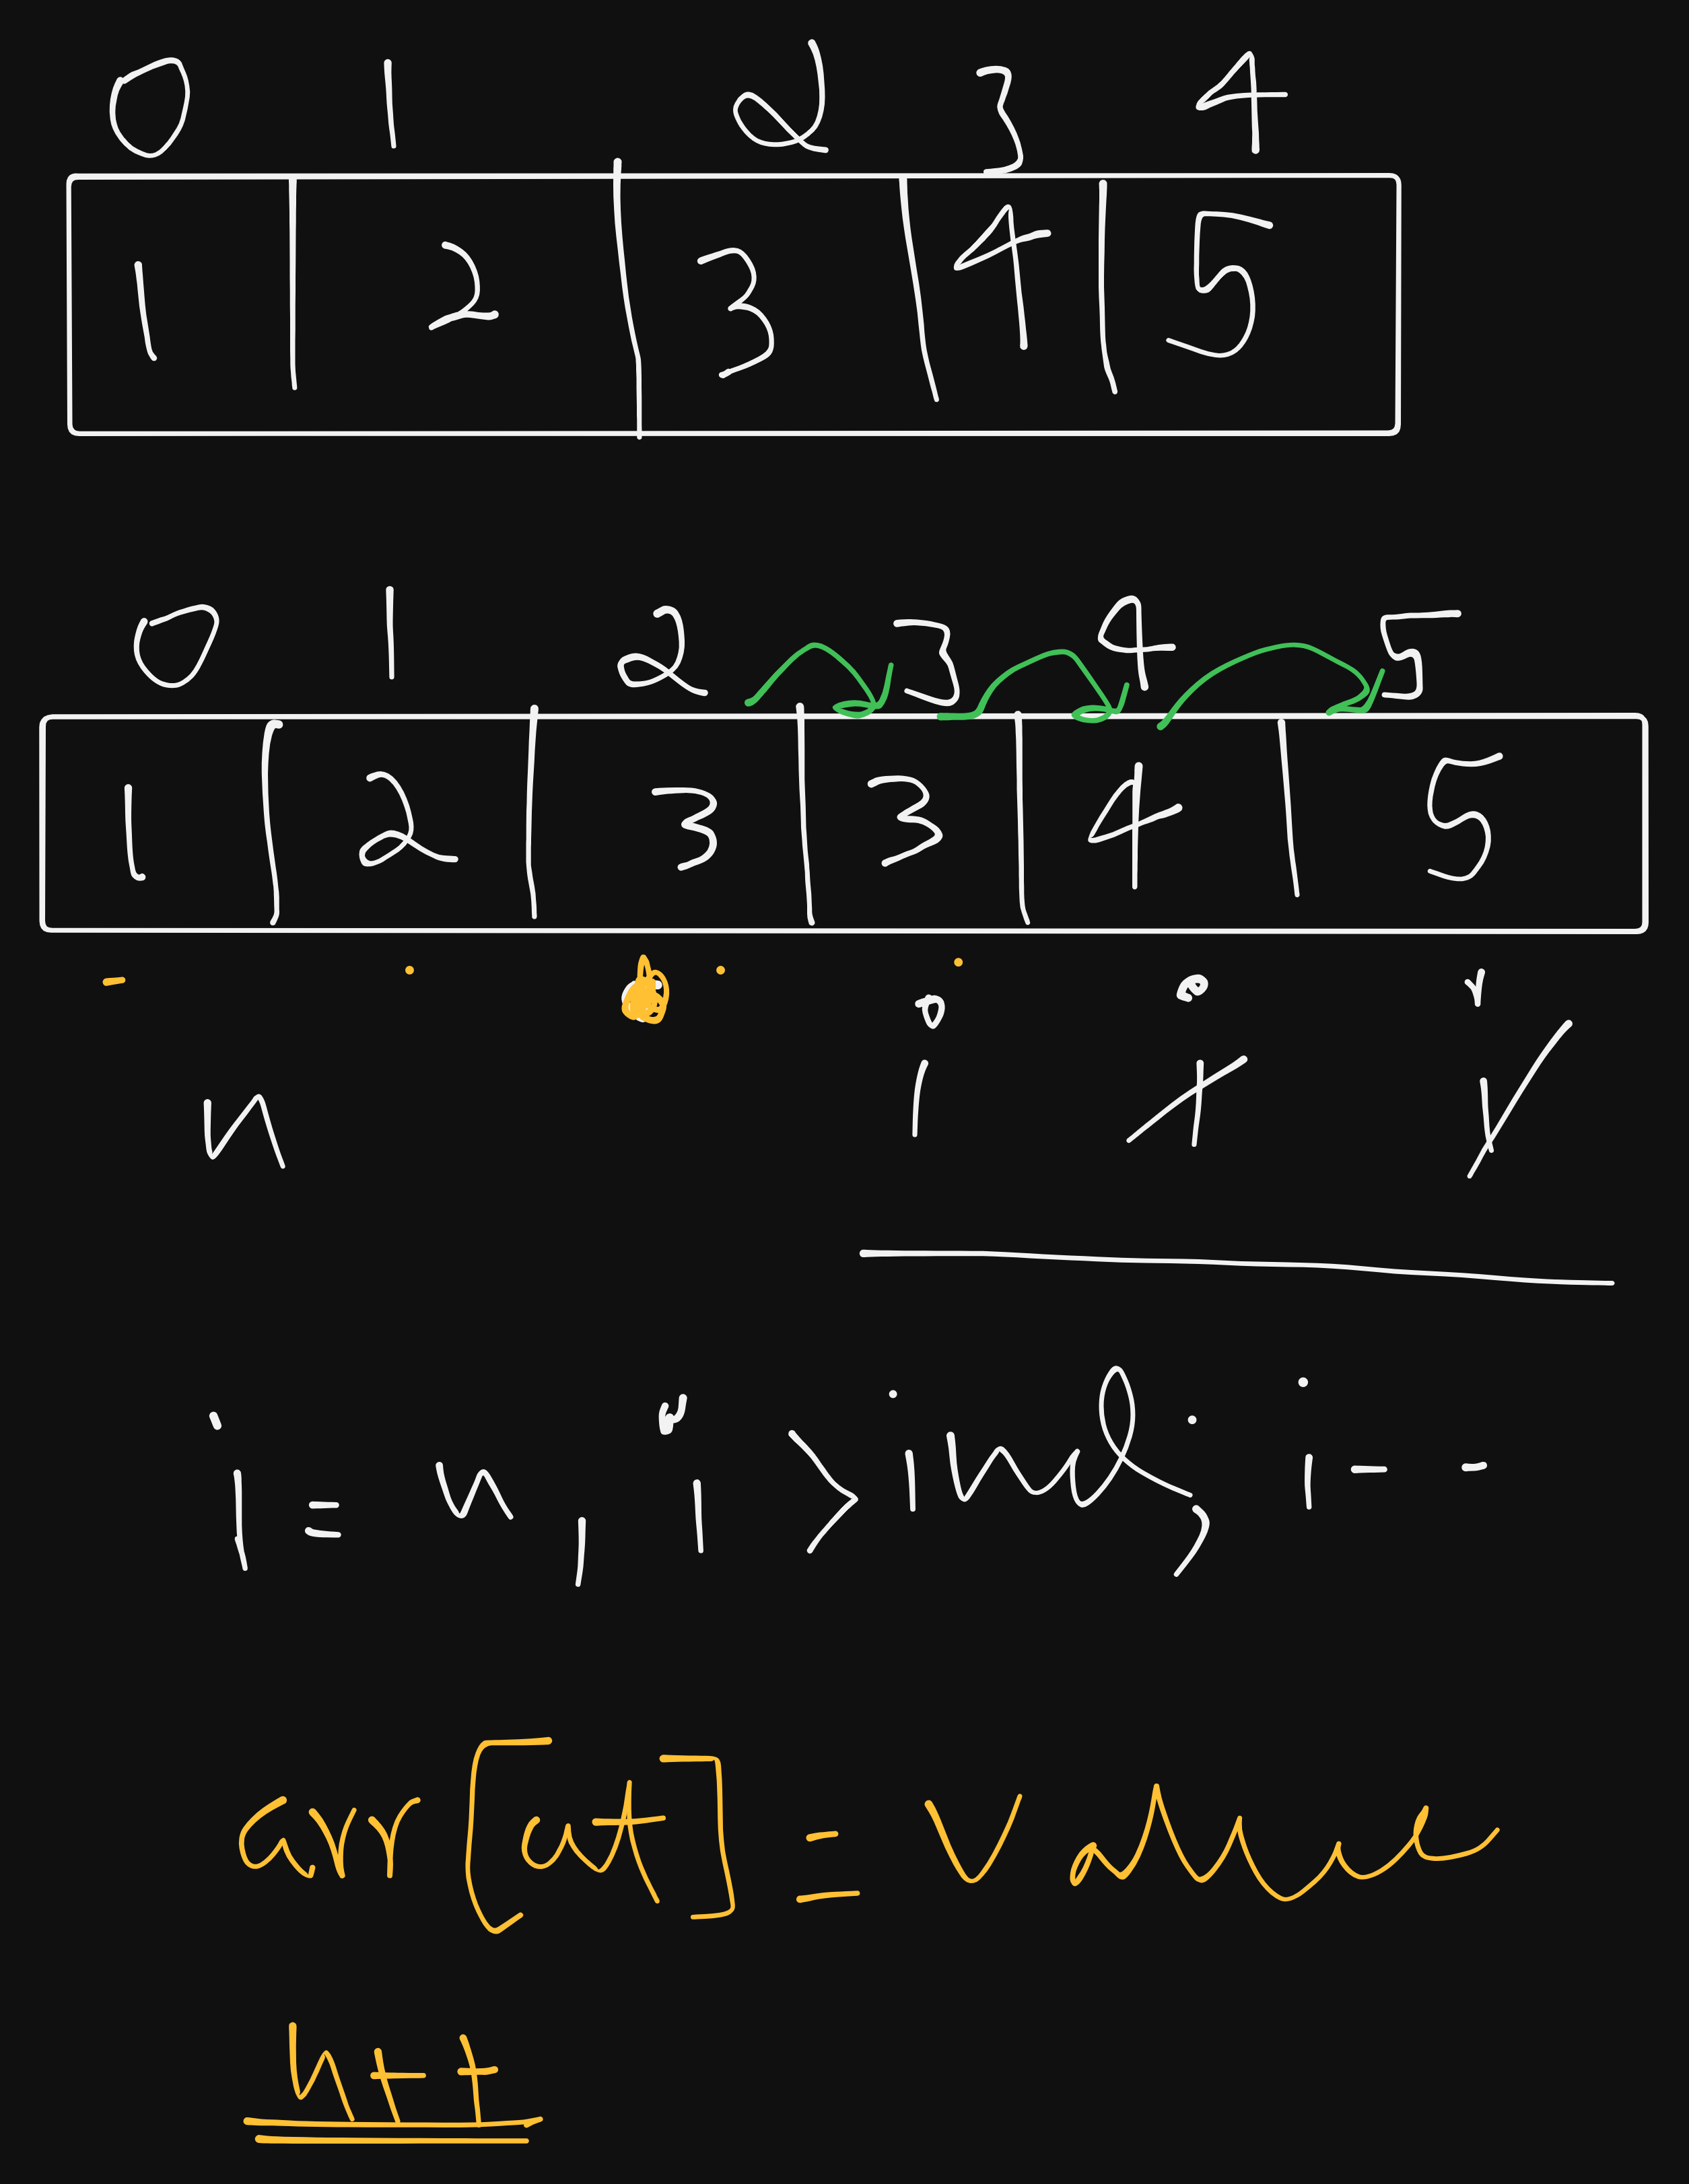 0 1 2 3 4
1 2 3 4 5
0 1 2 3 4 5
1 2 3 3 4 5
n i
i = n, i > ind; i - -
arr[at] = value
n++